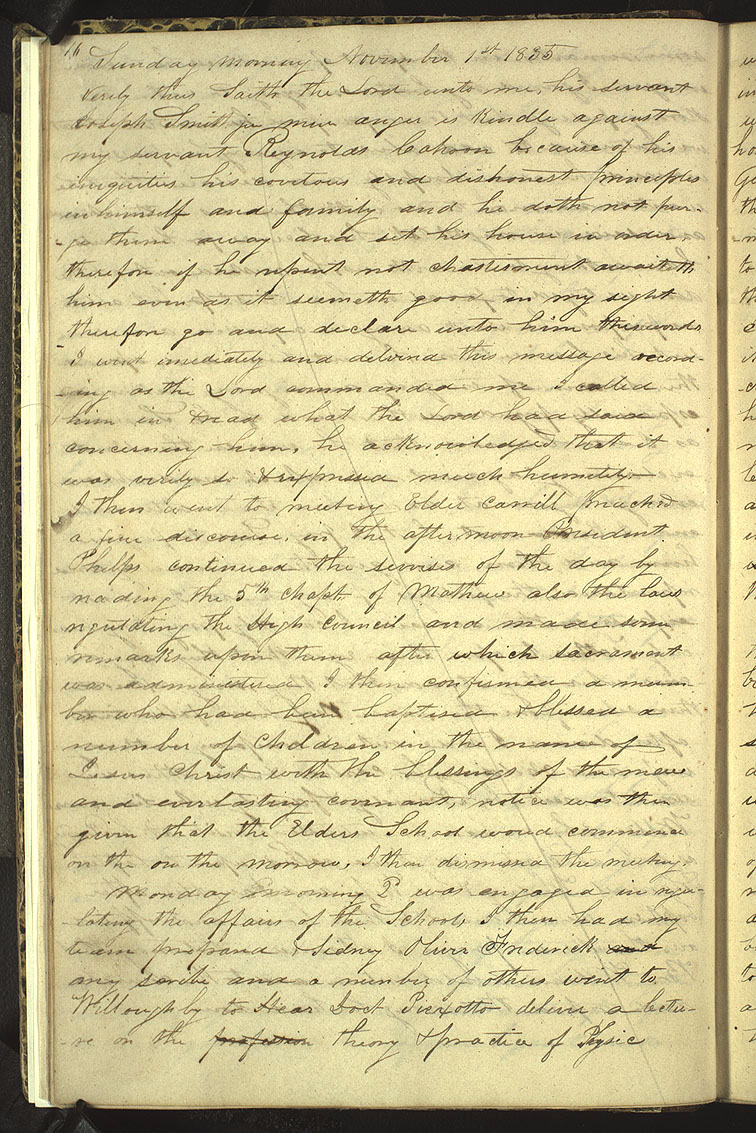 16 Sunday morning November 1st 1835
Verily thus Saith the Lord unto me, his servant
Joseph Smith jr mine anger is kindle against
my servant Reynolds Cahoon because of his
iniquities his covetous and dishonest principles
in himself and family and he doth not pur-
-ge them away and set his house in order,
therefore if he repent not chastisment awaiteth
him even as it seemeth good in my sight
therefore go and declare unto him this words
I went imediately and delivired this message accord-
-ing as the Lord commanded me I called
him in & read what the Lord had said
concerning him, he acknowledged that it
was verily so & expressed much humility
I then went to meeting Elder Carrill preached
a fine discourse, in the afternoon President
Phelps continued the servises of the day by
reading the 5th chapt. of Mathew also the laws
regulating the High Council and made some
remarks upon them after which sacrament
was administered I then confirmed a mem-
ber who had been baptised & blessed a
number of children in the name of
Jesus Christ with the blessings of the new
and everlasting covenant, notice was then
given that the Elders School would commence
on the on the morrow, I then dismissed the meeting
Monday morning was engaged in regu-
-lating the affairs of the School, I then had my
team prepared & Sidney Oliver Frederick and
my scribe and a number of others went to
Willoughby to Hear Doct Piexotto deliver a lectu-
-re on the profession theory & practice of Physic